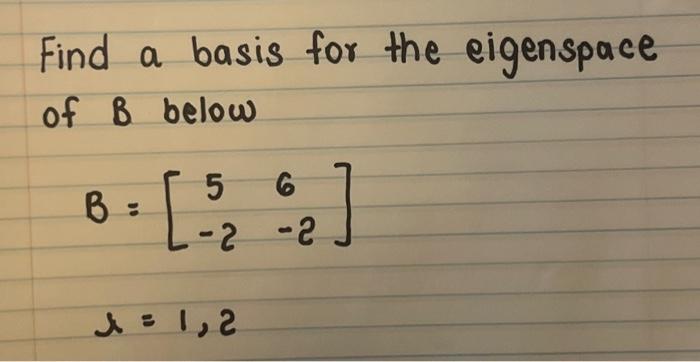 Find a basis for the eigenspace
of B below
B = [ 5 6
-2 -2 ]
λ = 1, 2